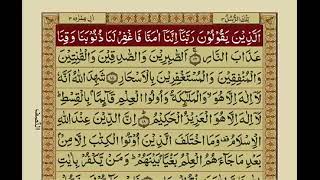 تِلْكَ الرُّسُلُ ٣
اٰلِ عِمْرٰن ٣
اَلَّذِيْنَ يَقُوْلُوْنَ رَبَّنَآ اِنَّنَآ اٰمَنَّا فَاغْفِرْ لَنَا ذُنُوْبَنَا وَقِنَا
عَذَابَ النَّارِ ﴿١٦﴾ اَلصّٰبِرِيْنَ وَالصّٰدِقِيْنَ وَالْقٰنِتِيْنَ
وَالْمُنْفِقِيْنَ وَالْمُسْتَغْفِرِيْنَ بِالْاَسْحَارِ ﴿١٧﴾ شَهِدَ اللّٰهُ اَنَّهٗ
لَآ اِلٰهَ اِلَّا هُوَ وَالْمَلٰٓئِكَةُ وَاُولُوا الْعِلْمِ قَآئِمًۢا بِالْقِسْطِ
لَآ اِلٰهَ اِلَّا هُوَ الْعَزِيْزُ الْحَكِيْمُ ﴿١٨﴾ اِنَّ الدِّيْنَ عِنْدَ اللّٰهِ
الْاِسْلَامُ وَمَا اخْتَلَفَ الَّذِيْنَ اُوْتُوا الْكِتٰبَ اِلَّا مِنْۢ
بَعْدِ مَا جَآءَهُمُ الْعِلْمُ بَغْيًۢا بَيْنَهُمْ وَمَنْ يَّكْفُرْ بِاٰيٰتِ
النصف